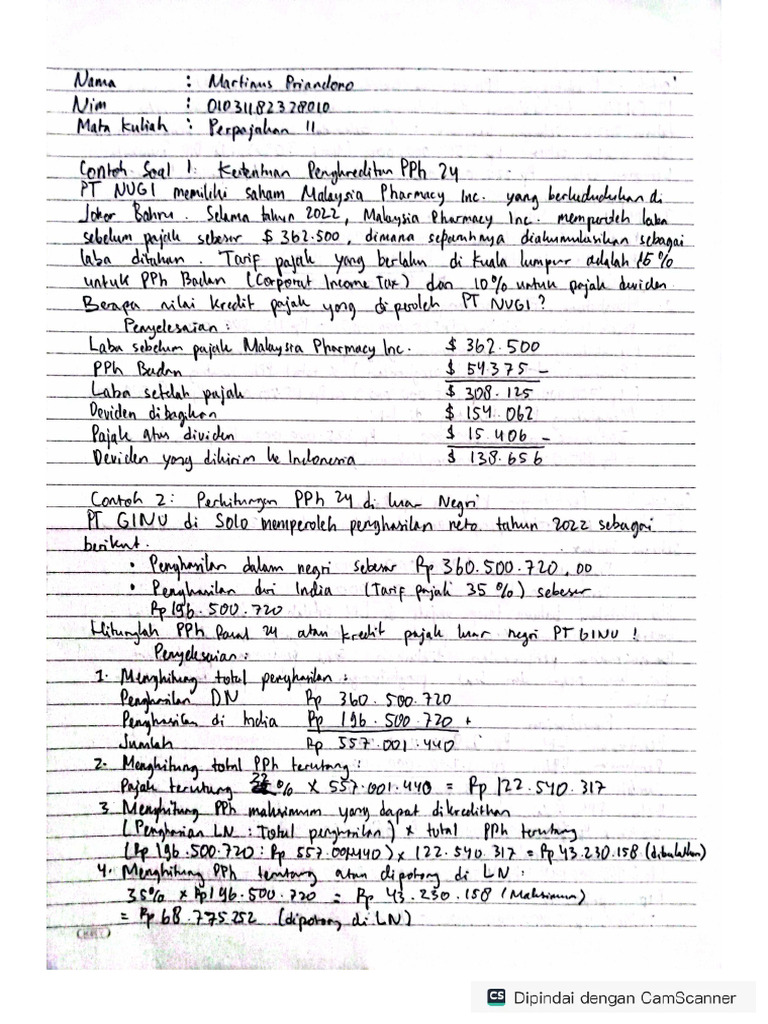 Nama : Martinus Priandono
Nim : 01031182328010
Mata kuliah : Perpajakan II
Contoh Soal 1: Ketentuan Pengkreditan PPh 24
PT NUGI memiliki saham Malaysia Pharmacy Inc. yang berkedudukan di
Johor Bahru. Selama tahun 2022, Malaysia Pharmacy Inc. memperoleh laba
sebelum pajak sebesar $ 362.500, dimana sepenuhnya diakumulasikan sebagai
laba ditahan. Tarif pajak yang berlaku di kuala lumpur adalah 15%
untuk PPh Badan (Corporat Income Tax) dan 10% untuk pajak deviden
Berapa nilai kredit pajak yang diperoleh PT NUGI?
Penyelesaian :
Laba sebelum pajak Malaysia Pharmacy Inc. $ 362.500
PPh Badan $ 54.375 -
Laba setelah pajak $ 308.125
Deviden dibagikan $ 154.062
Pajak atas dividen $ 15.406 -
Deviden yang dikirim ke Indonesia $ 138.656
Contoh 2: Perhitungan PPh 24 di luar Negri
PT GINU di Solo memperoleh penghasilan neto tahun 2022 sebagai
berikut.
• Penghasilan dalam negri sebesar Rp 360.500.720,00
• Penghasilan dari India (Tarif pajak 35%) sebesar
Rp 196.500.720
Hitunglah PPh Pasal 24 atau kredit pajak luar negri PT GINU!
Penyelesaian :
1. Menghitung total penghasilan :
Penghasilan DN Rp 360.500.720
Penghasilan di India Rp 196.500.720 +
Jumlah Rp 557.001.440
2. Menghitung total PPh terutang :
Pajak terutang 22% x 557.001.440 = Rp 122.540.317
3. Menghitung PPh maksimum yang dapat dikreditkan
(Penghasian LN : Total penghasilan) x total PPh terutang
(Rp 196.500.720 : Rp 557.001.440) x (122.540.317 = Rp 43.230.158 (dibulatkan)
4. Menghitung PPh terutang atau dipotong di LN :
35% x Rp 196.500.720 = Rp 43.230.158 (Maksimum)
= Rp 68.775.252 (dipotong di LN)
CS Dipindai dengan CamScanner